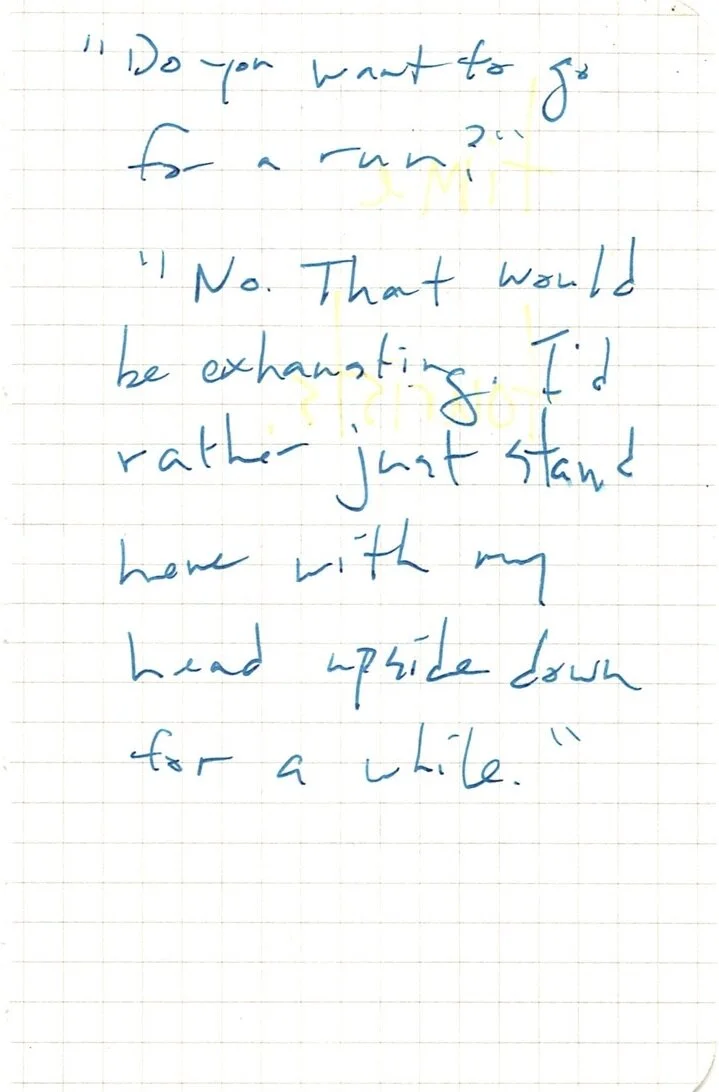 "Do you want to go
for a run?"
"No. That would
be exhausting. I'd
rather just stand
here with my
head upside down
for a while."